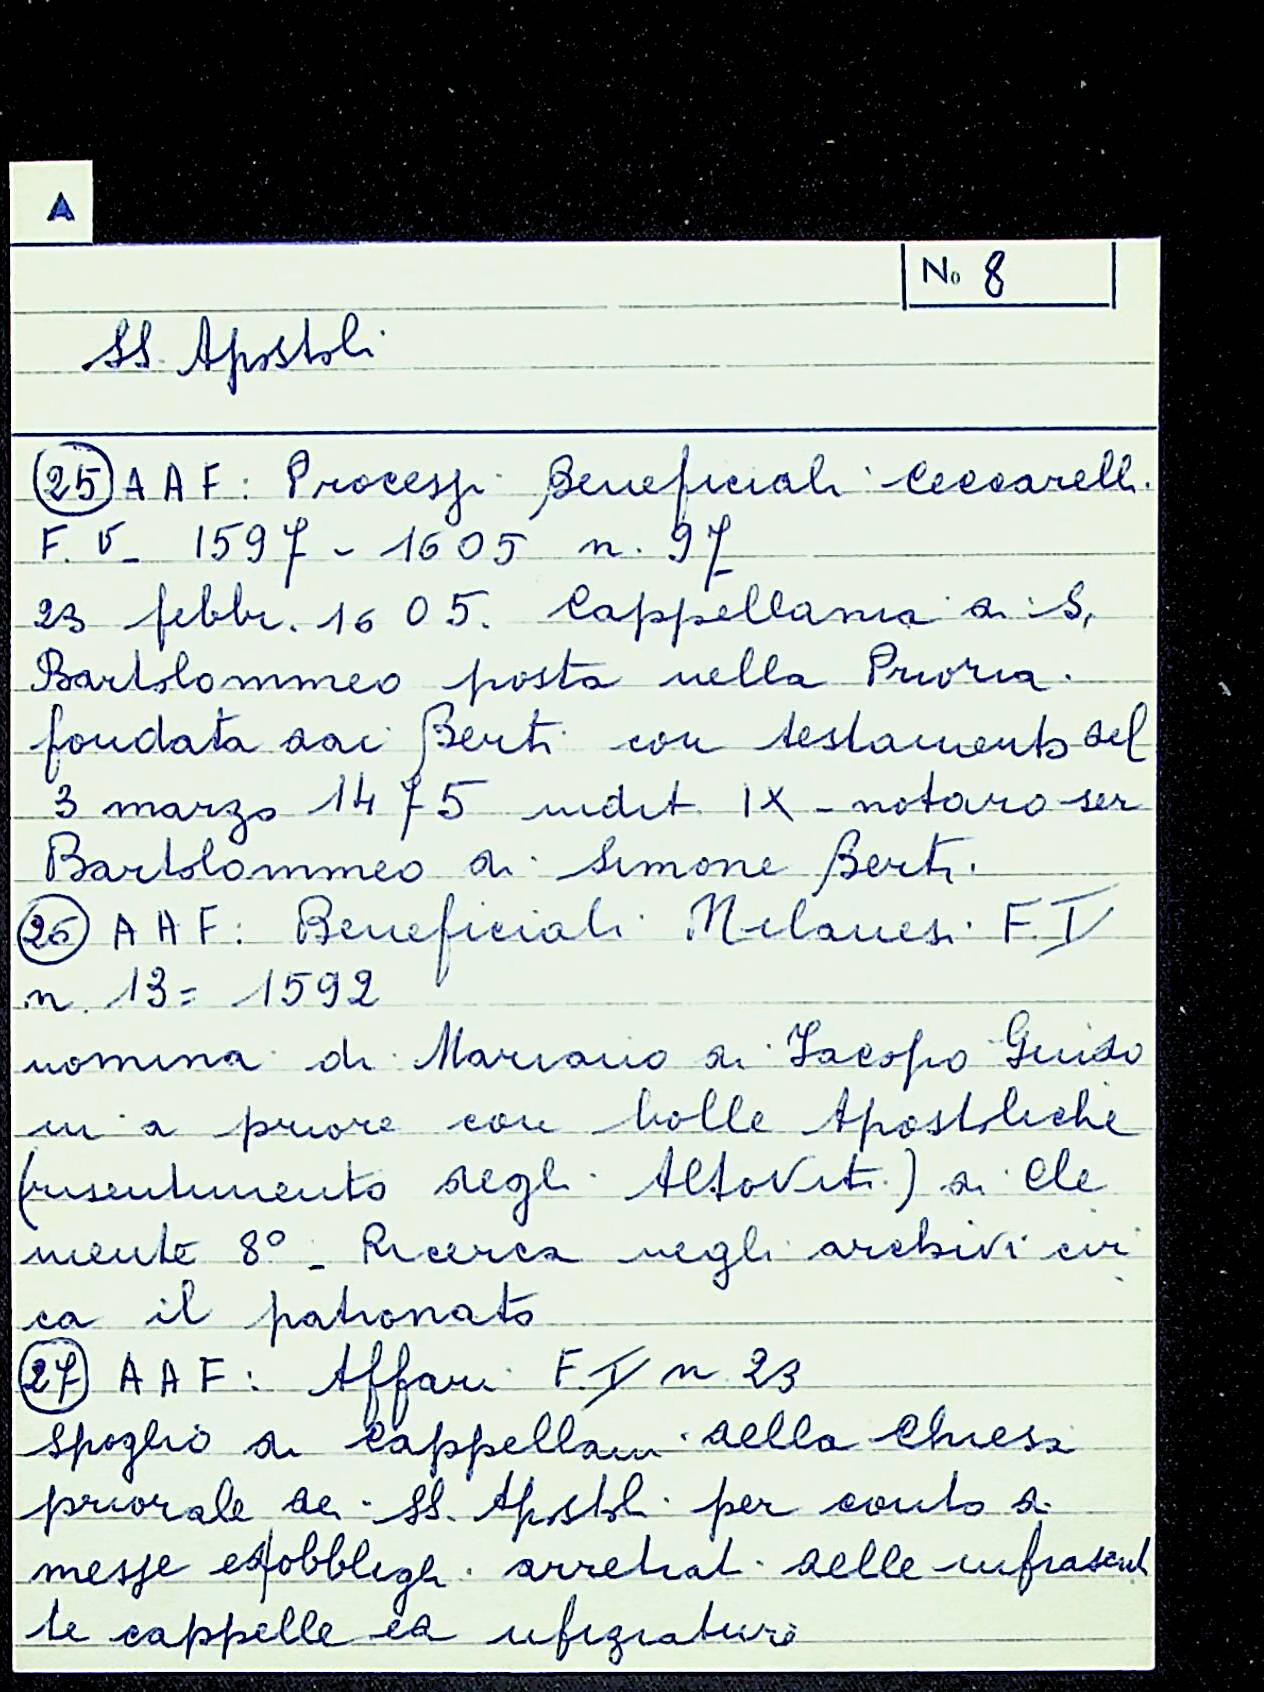 A
No 8
SS. Apostoli
25 A A F: Processi Beneficiali Ceccarelli
F. V_ 1597 - 1605 n. 97
23 febbr. 1605. Cappellania di S.
Bartolommeo posta nella Prioria.
fondata dai Berti con testamento del
3 marzo 1475 indit. IX - notaro ser
Bartolommeo di Simone Berti.
26 A A F: Beneficiali Milanesi F. IV
n. 13 = 1592
nomina di Mariano di Jacopo Guido
ni a priore con bolle Apostoliche
(risentimento degli Altoviti) di Cle
mente 8° - Ricerca negli archivi cir
ca il patronato
27 A A F: Affari F. IV n 23
Spoglio di Cappellani della Chiesa
priorale dei SS. Apostoli per conto di
messe ed obblighi arretrati delle infrascrit
te cappelle ed